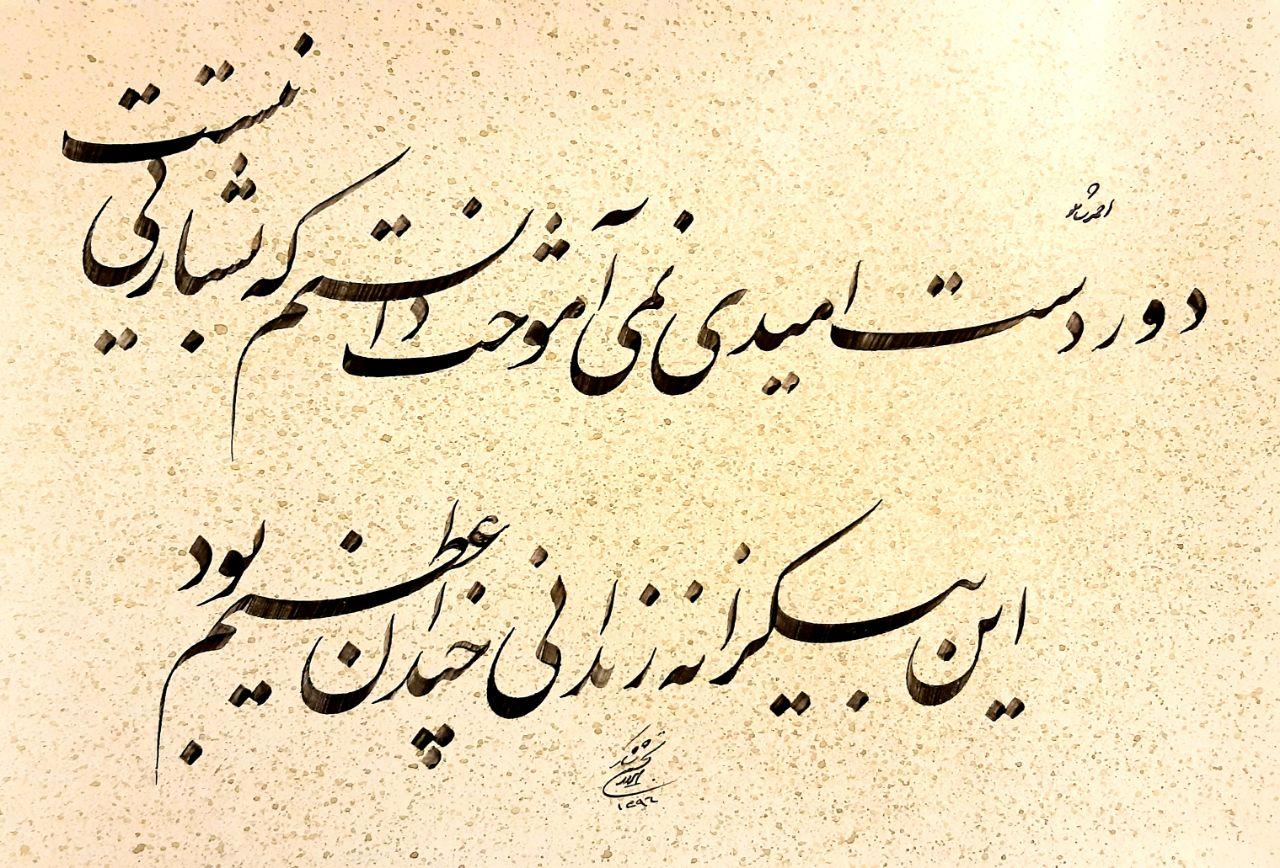 احمد شاملو
دوردست امیدی نمی آموخت دانستم که بشارتی نیست
این بیکرانه زندانی چندان عظیم بود